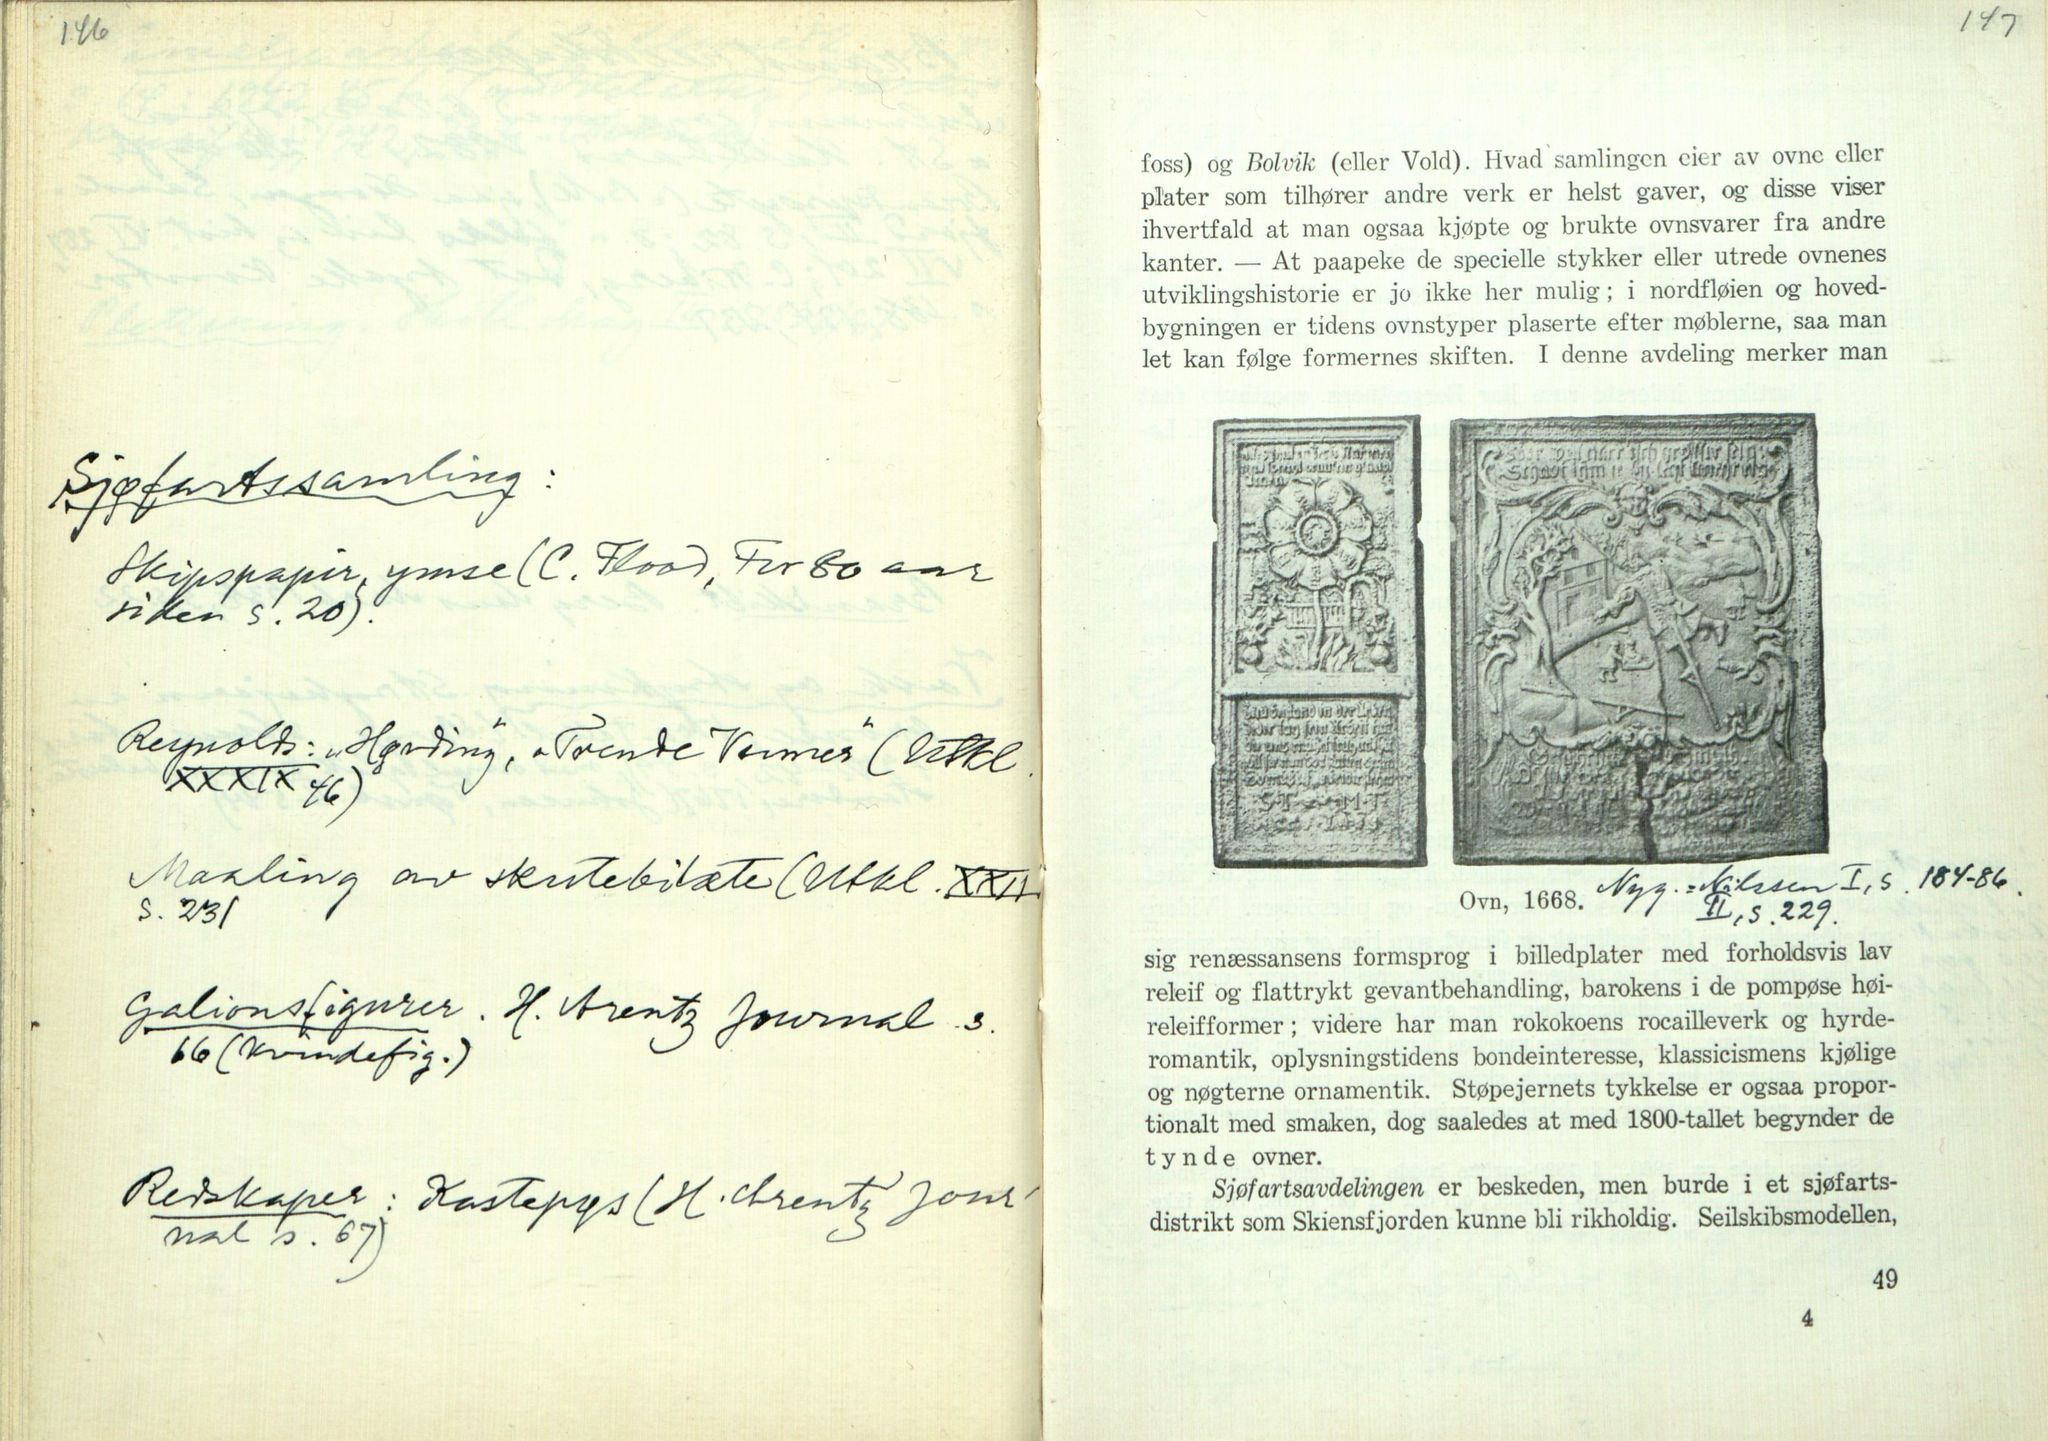 146
Sjøfartssamling:
Skipspapir, ymse (C. Flood, For 80 aar
siden s. 20).
Reynolds: „Hørding", „Trende Venner" (Utkl.
XXXIX 46)
Maaling av skutebilæte (Utkl. XXII
s. 231
Galionsfigurer. H. Arentz Journal s.
66 (Kvindefig.)
Redskaper: Kastepys (H. Arentz Jour
nal s. 67)
147
foss) og Bolvik (eller Vold). Hvad samlingen eier av ovne eller
plater som tilhører andre verk er helst gaver, og disse viser
ihvertfald at man ogsaa kjøpte og brukte ovnsvarer fra andre
kanter. — At paapeke de specielle stykker eller utrede ovnenes
utviklingshistorie er jo ikke her mulig; i nordfløien og hoved-
bygningen er tidens ovnstyper plaserte efter møblerne, saa man
let kan følge formernes skiften. I denne avdeling merker man
Ovn, 1668. Nyg.=Nilssen I, s. 184-86.
II, s. 229.
sig renæssansens formsprog i billedplater med forholdsvis lav
releif og flattrykt gevantbehandling, barokens i de pompøse høi-
releifformer; videre har man rokokoens rocailleverk og hyrde-
romantik, oplysningstidens bondeinteresse, klassicismens kjølige
og nøgterne ornamentik. Støpejernets tykkelse er ogsaa propor-
tionalt med smaken, dog saaledes at med 1800-tallet begynder de
tynde ovner.
Sjøfartsavdelingen er beskeden, men burde i et sjøfarts-
distrikt som Skiensfjorden kunne bli rikholdig. Seilskibsmodellen,
49
4